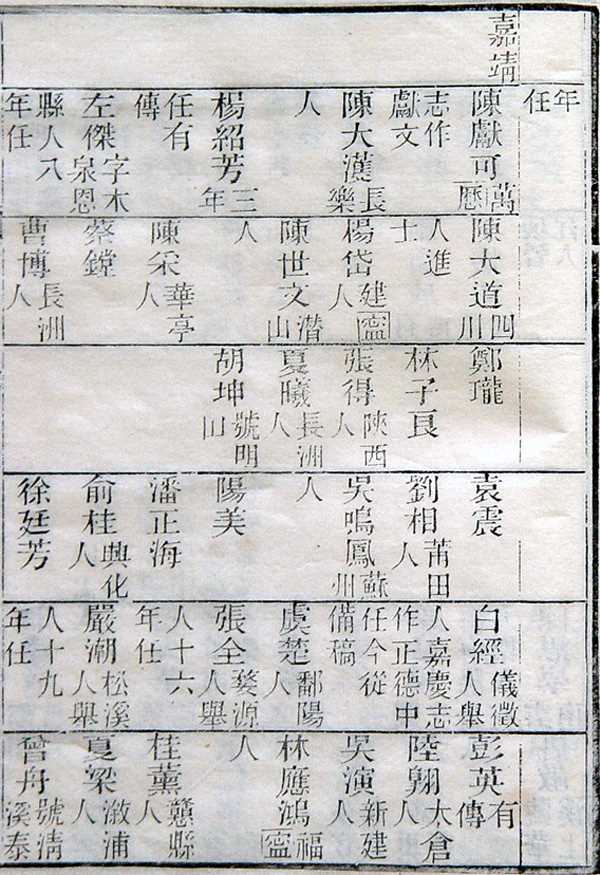 嘉靖
年任
陳獻可萬曆
志作獻文
陳大漢長樂
人
楊紹芳三年
任有傳
左傑字木泉恩
縣人八年任
陳大道四川
人進士
楊岱建寍人
陳世文潛山
人
陳采華亭人
蔡鏜
曹博長洲人
鄭瓏
林子良
張得陝西人
夏曦長洲人
胡坤號明山
袁震
劉相莆田人
吳鳴鳳蘇州
人
陽美
潘正海
俞桂興化人
徐廷芳
白經儀徵人舉
人嘉慶志作正德中
任今從備稿
虞楚鄱陽人
張全婺源人舉
人十六年任
嚴潮松溪人舉
人十九年任
彭英有傳
陸翱太倉人
吳演新建人
林應鴻福寍
人
桂薰贛縣人
夏梁漵浦人
曾舟號清溪泰